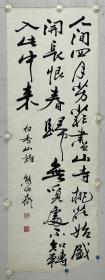 人間四月芳菲盡山寺桃花始盛
開長恨春歸無覓處不知轉
入此中来
白香山詩 熊伯齊